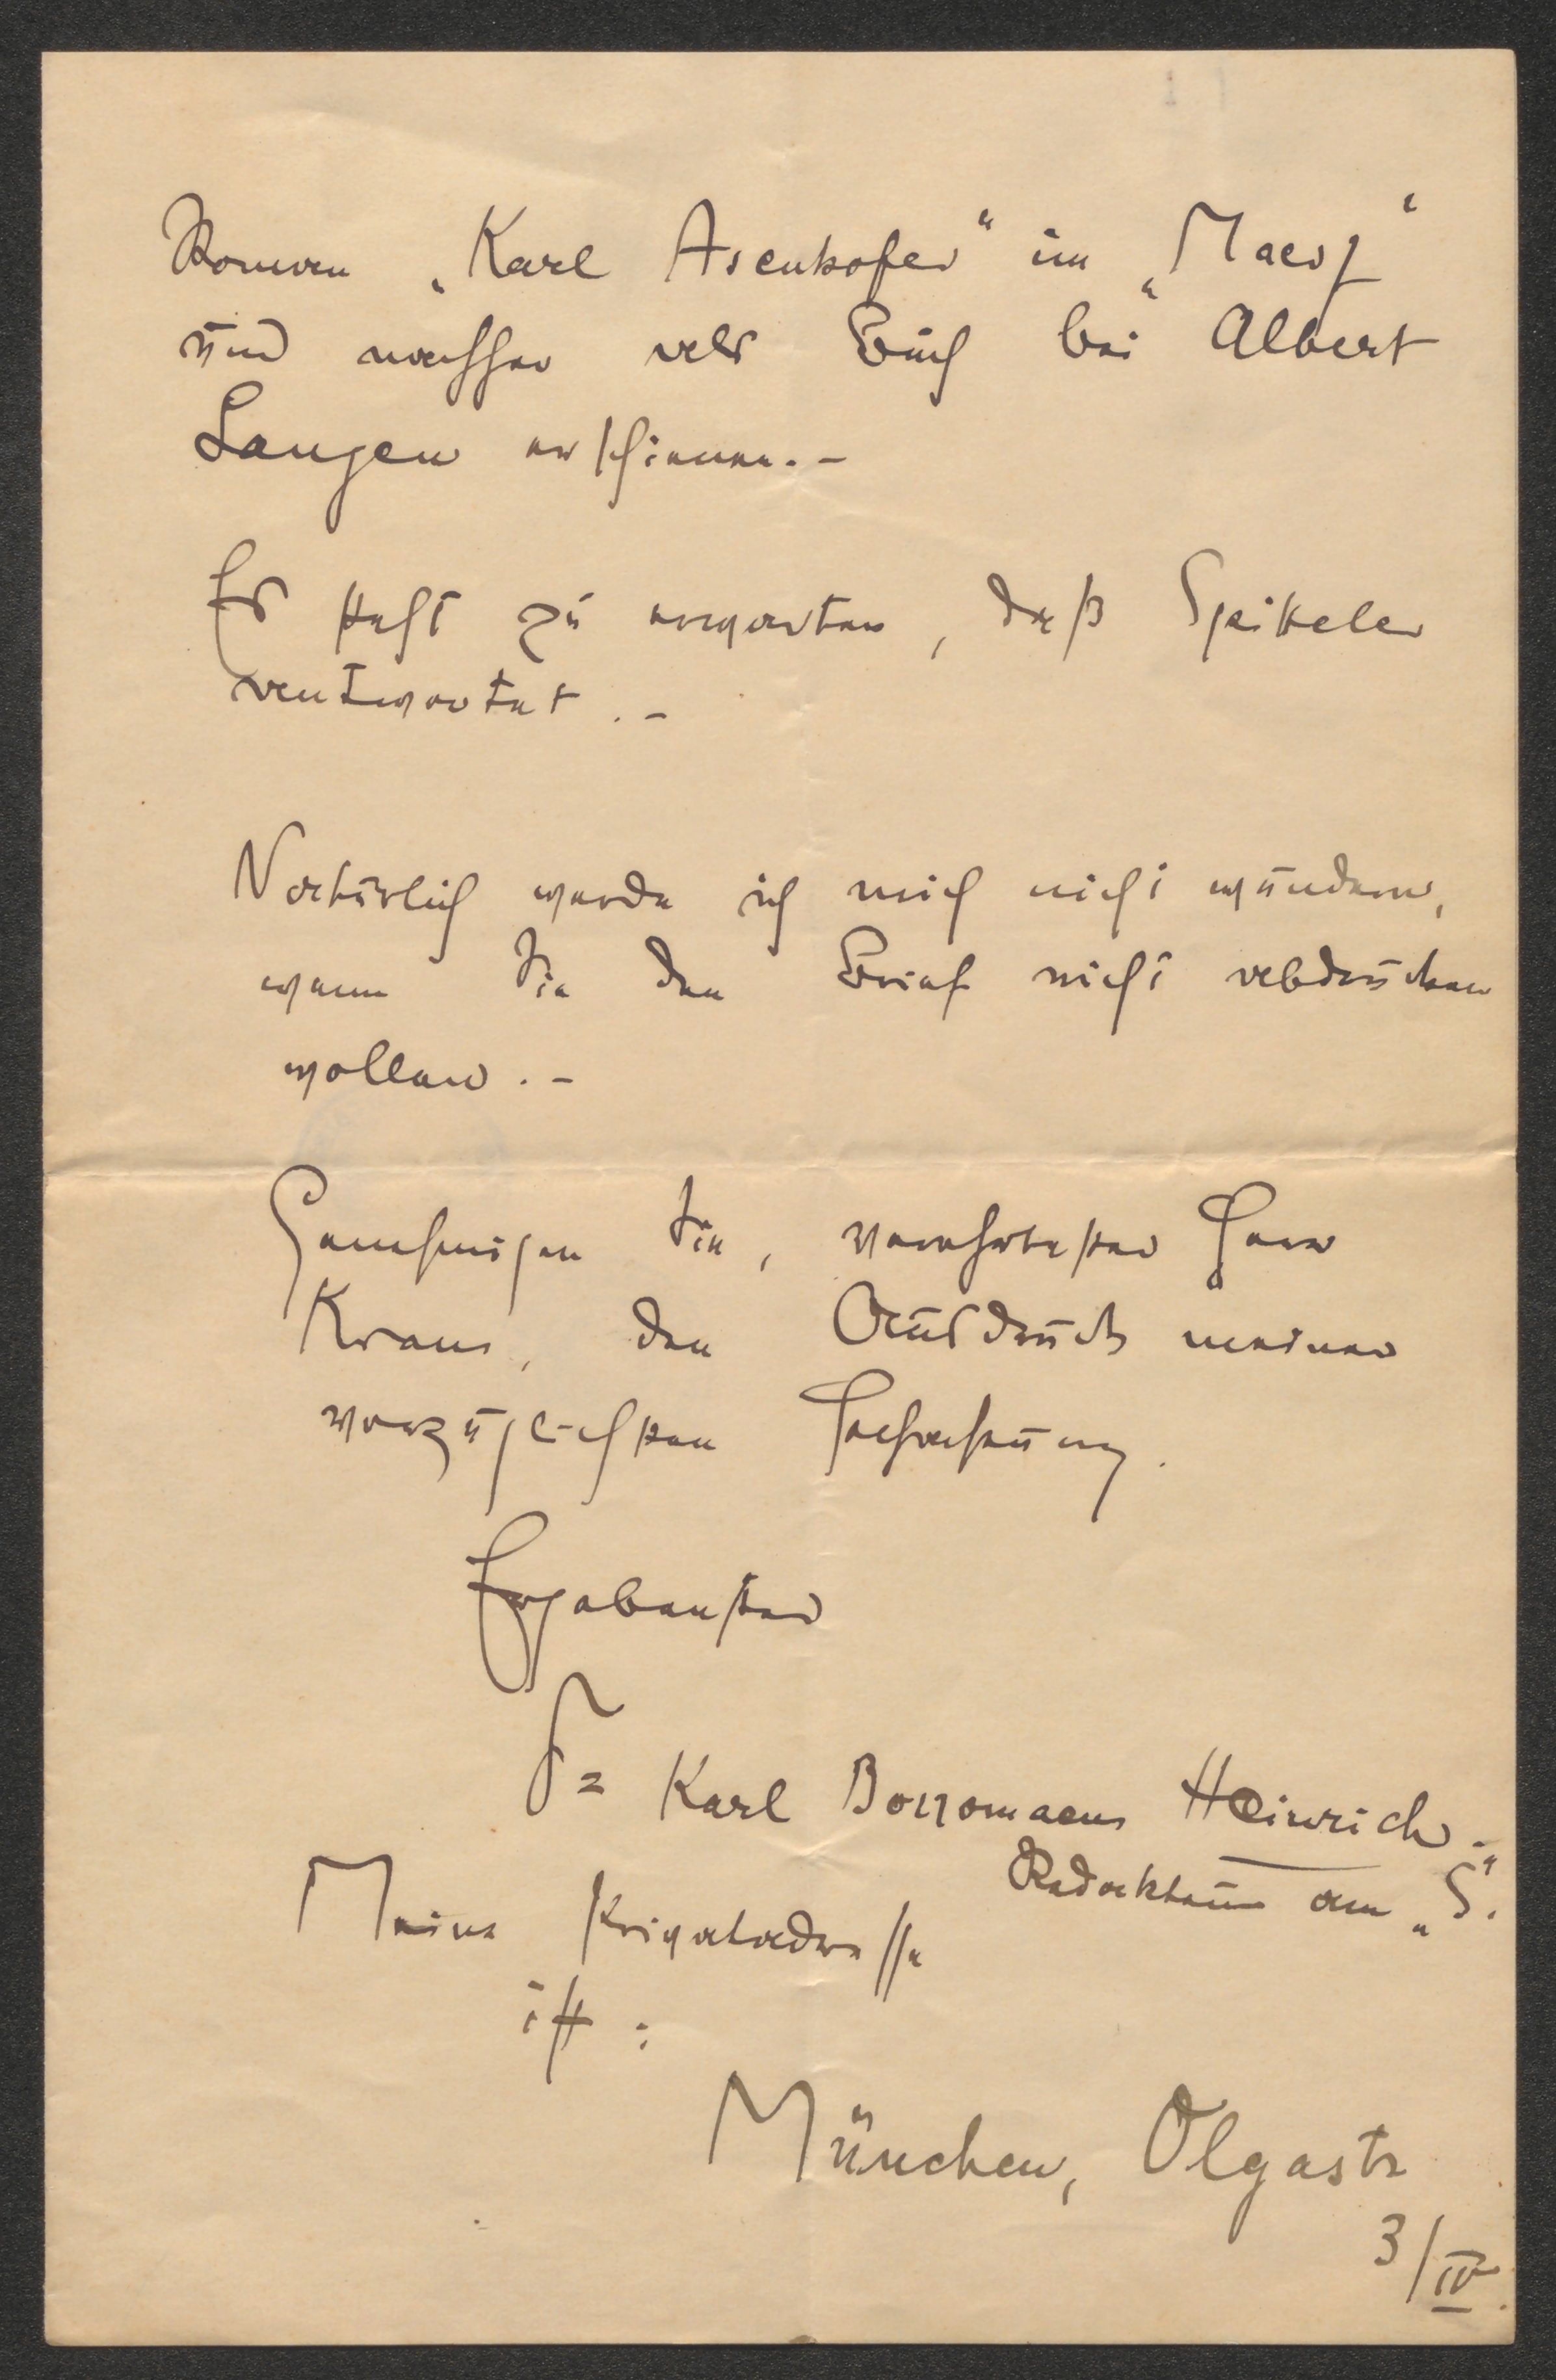 Roman „Karl Asenkofer“ im „Maerz“
und nachher als Buch bei Albert
Langen erschienen.-
Es steht zu erwarten, daß Spitteler
antwortet.-
Natürlich werde ich mich nicht wundern,
wenn Sie den Brief nicht abdrucken
wollen.-
Genehmigen Sie, verehrtester Herr
Kraus, den Ausdruck meiner
vorzüglichsten Hochachtung.
Ergebenster
Karl Borromaeus Heinrich.-
Redakteur am „S.“
Meine Privatadresse
ist:
München, Olgastr
3/IV.